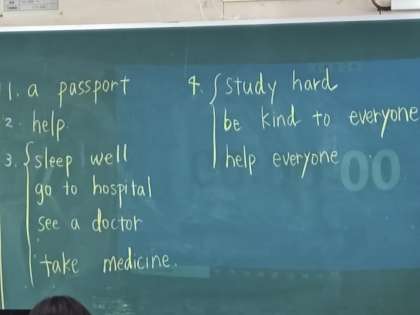 1. a passport
2. help
3. sleep well
go to hospital
see a doctor
take medicine.
4. study hard
be kind to everyone
help everyone
00